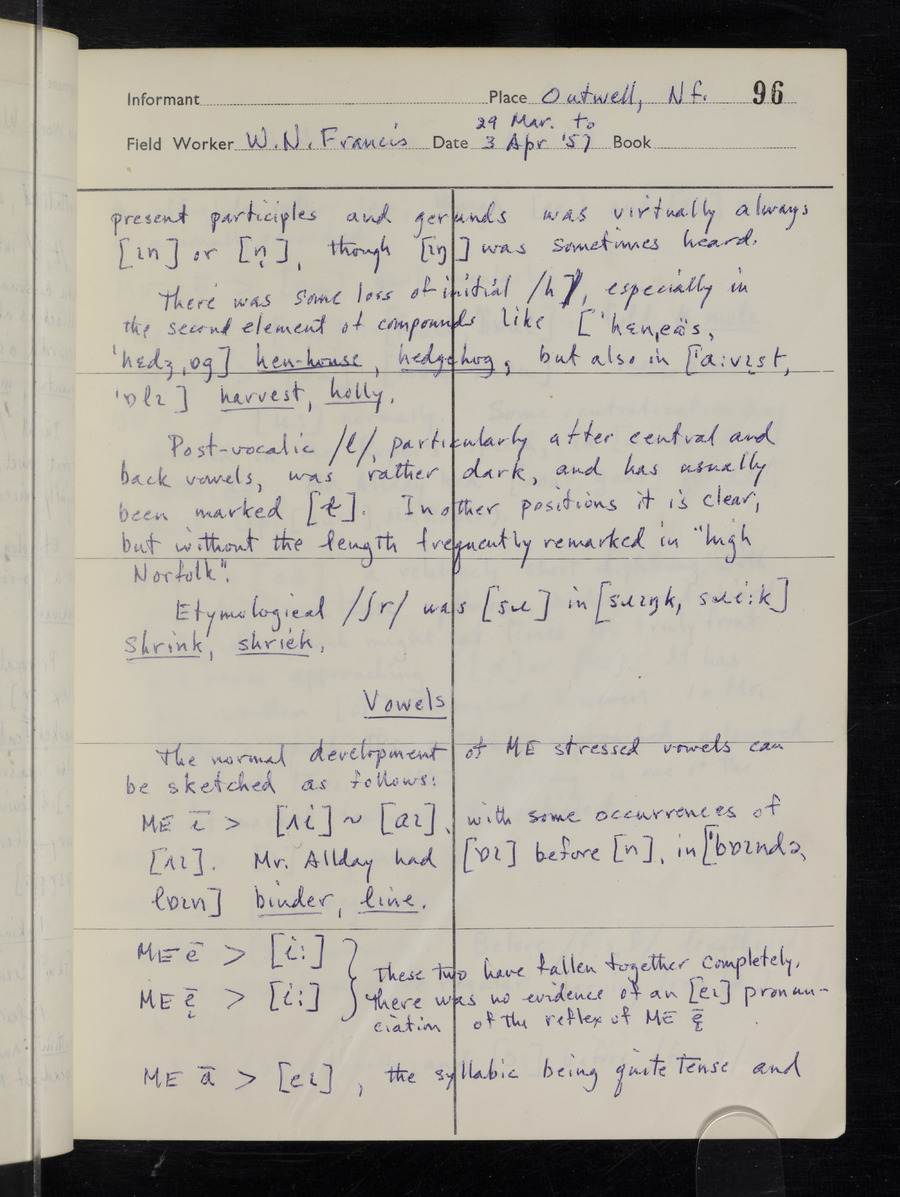 Informant Place Outwell, Nf. 96
Field Worker W.N. Francis Date 29 Mar. to 3 Apr '57 Book
present participles and gerunds was virtually always
[ɪn] or [n̩], though [ɪŋ] was sometimes heard.
There was some loss of initial /h/, especially in
the second element of compounds like ['hɛn,ɛəs,
'hɛdʒ,ɒg] hen-house, hedgehog, but also in ['a:vɪst,
'ɒlɪ] harvest, holly.
Post-vocalic /l/, particularly after central and
back vowels, was rather dark, and has usually
been marked [ɫ]. In other positions it is clear,
but without the length frequently remarked in "high
Norfolk".
Etymological /ʃr/ was [sɹ] in [sɹɪŋk, sɹi:k]
shrink, shriek.
Vowels
The normal development of ME stressed vowels can
be sketched as follows:
ME ī > [ʌi] ~ [aɪ], with some occurrences of
[ʌɪ]. Mr. Allday had [ɒɪ] before [n], in ['bɒɪndə,
lɒɪn] binder, line.
ME ē > [i:]
ME ę̄ > [i:]
} These two have fallen together completely.
There was no evidence of an [eɪ] pronun-
ciation of the reflex of ME ę̄
ME ā > [eɪ], the syllabic being quite tense and